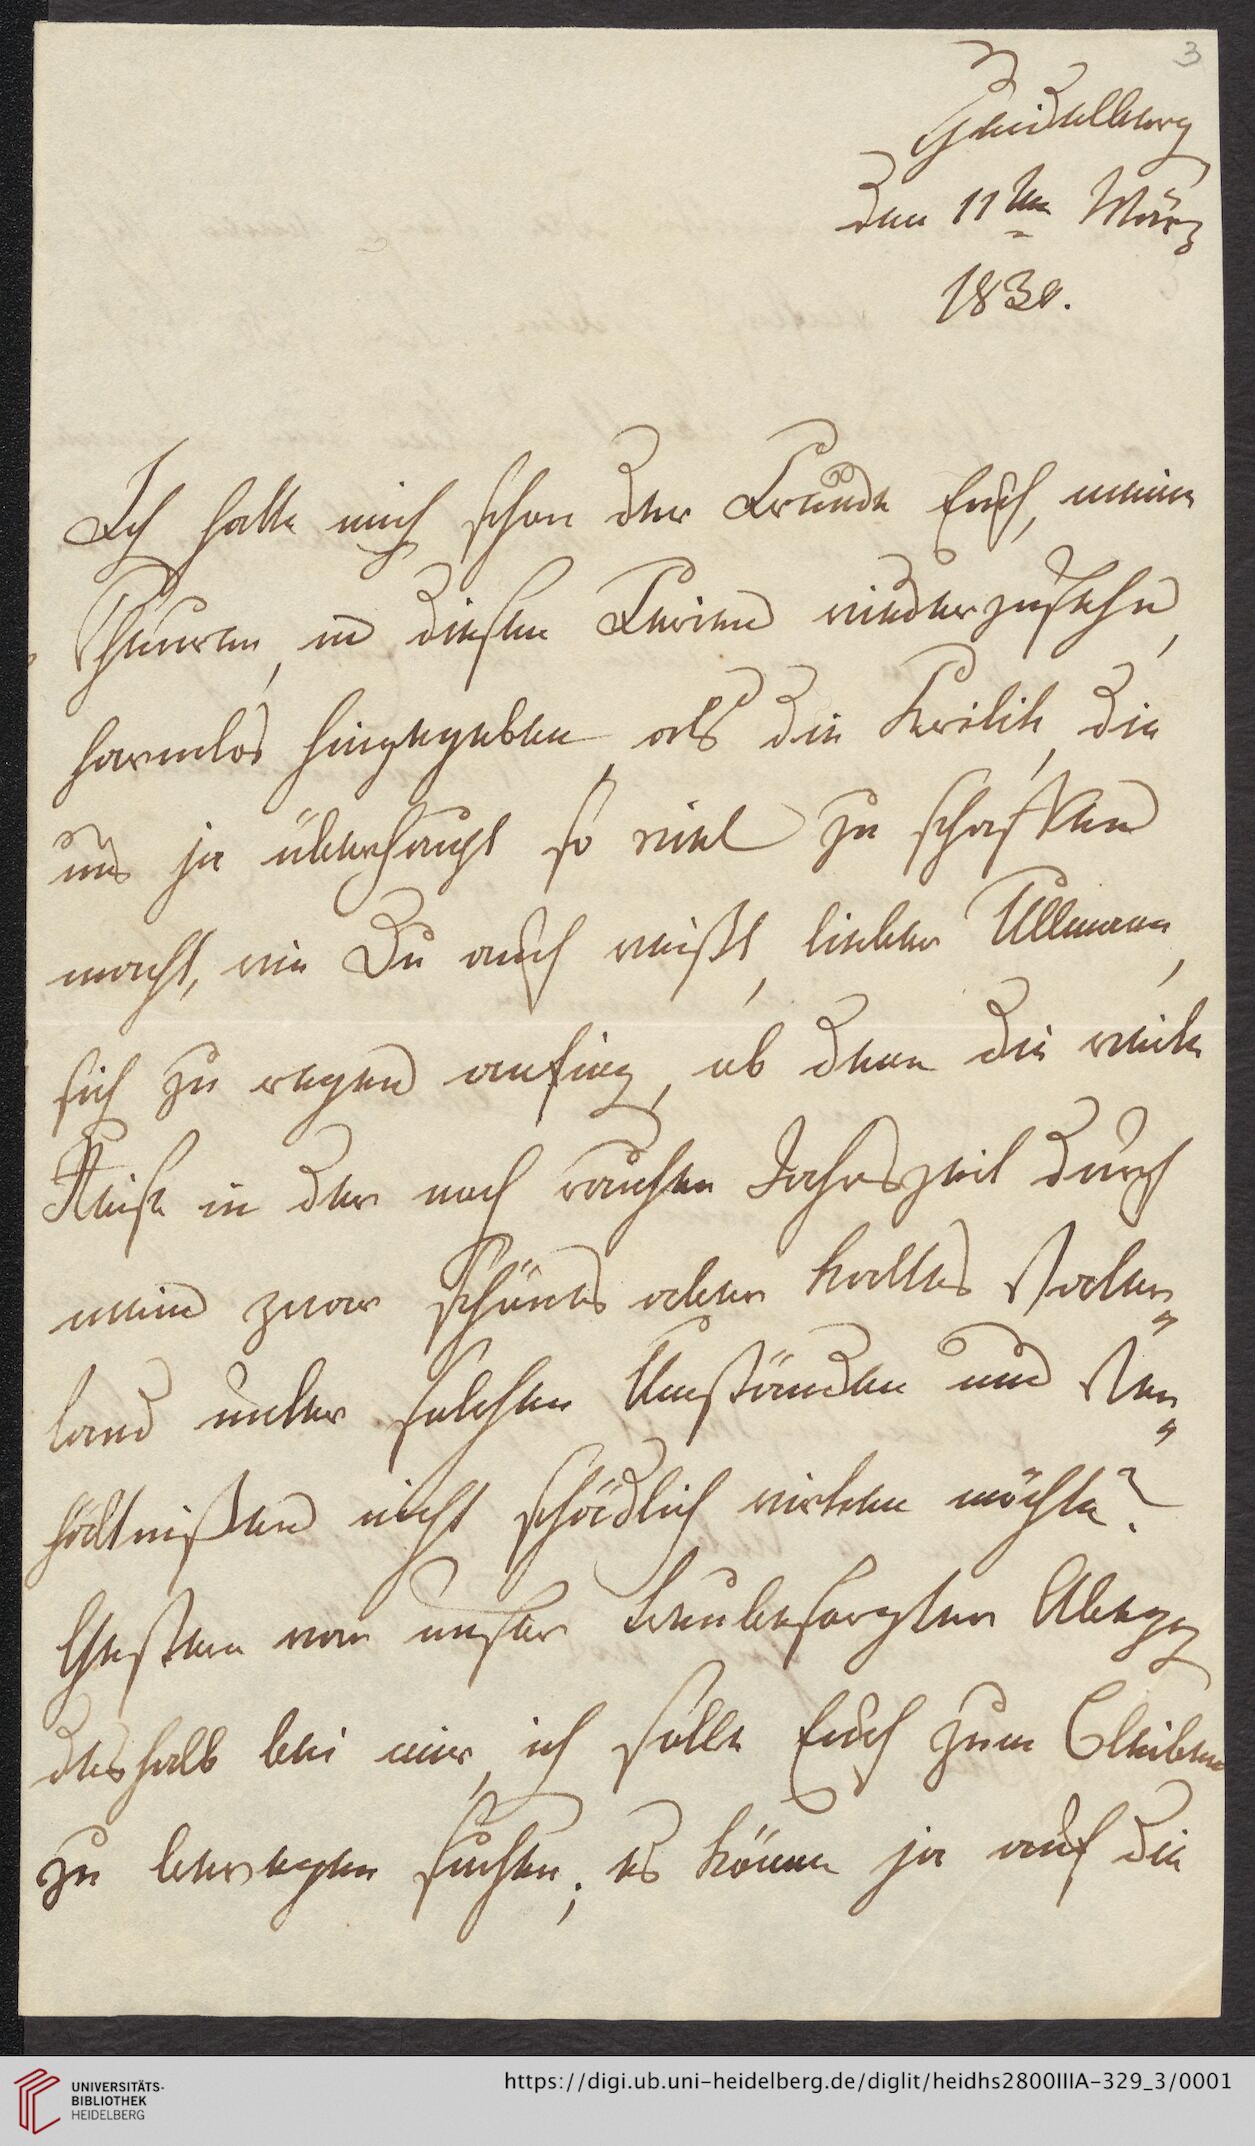 3
Heidelberg
den 11ten März
1830.
Ich hatte mich schon der Freude Euch, meine
Theuren, in diesen Ferien wiederzusehn,
harmlos hingegeben, als die Kritik, die
uns ja überhaupt so viel zu schaffen
macht, wie Du auch weißt, lieber Ullmann,
sich zu regen anfing, ob denn die weite
Reise in der noch rauhen Jahrszeit durch
mein zwar schönes aber kaltes Vater„
land unter solchen Umständen und Ver„
hältnißen nicht schädlich wirken möchte?
Gestern war unser treubesorgter Abegg
deshalb bei mir, ich sollte Euch zum Bleiben
zu bewegen suchen; es könne ja auf die
UNIVERSITÄTS-
BIBLIOTHEK
HEIDELBERG
https://digi.ub.uni-heidelberg.de/diglit/heidhs2800IIIA-329_3/0001